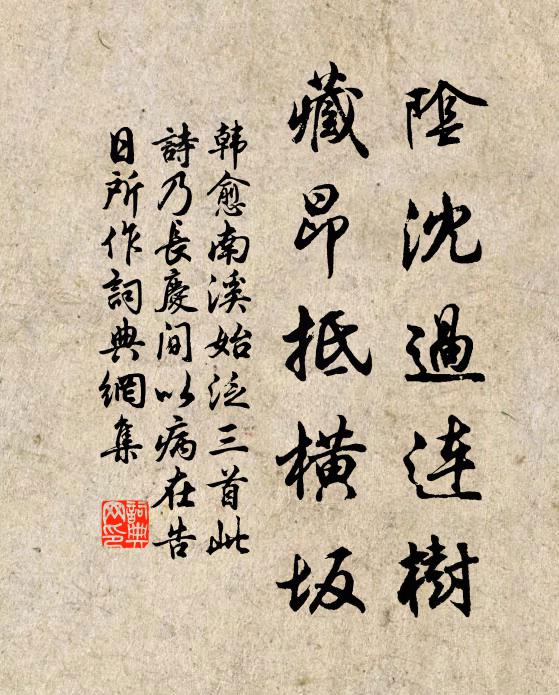 陰沈過連樹
藏昂抵橫坂
韩愈南溪始泛三首此
詩乃長慶间以病在告
日所作詞典網集
詞典網印